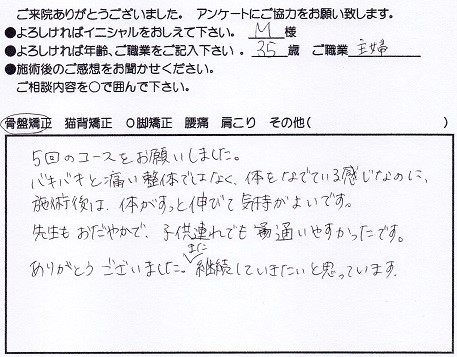 ご来院ありがとうございました。 アンケートにご協力をお願い致します。
●よろしければイニシャルをおしえて下さい。 M 様
●よろしければ年齢、ご職業をご記入下さい。 35 歳 ご職業 主婦
●施術後のご感想をお聞かせください。
ご相談内容を○で囲んで下さい。
骨盤矯正 猫背矯正 O脚矯正 腰痛 肩こり その他( )
5回のコースをお願いしました。
バキバキと痛い整体ではなく、体をなでている感じなのに、
施術後は、体がすっと伸びて気持がよいです。
先生もおだやかで、子供連れでも通いやすかったです。
ありがとうございました。また継続していきたいと思っています。